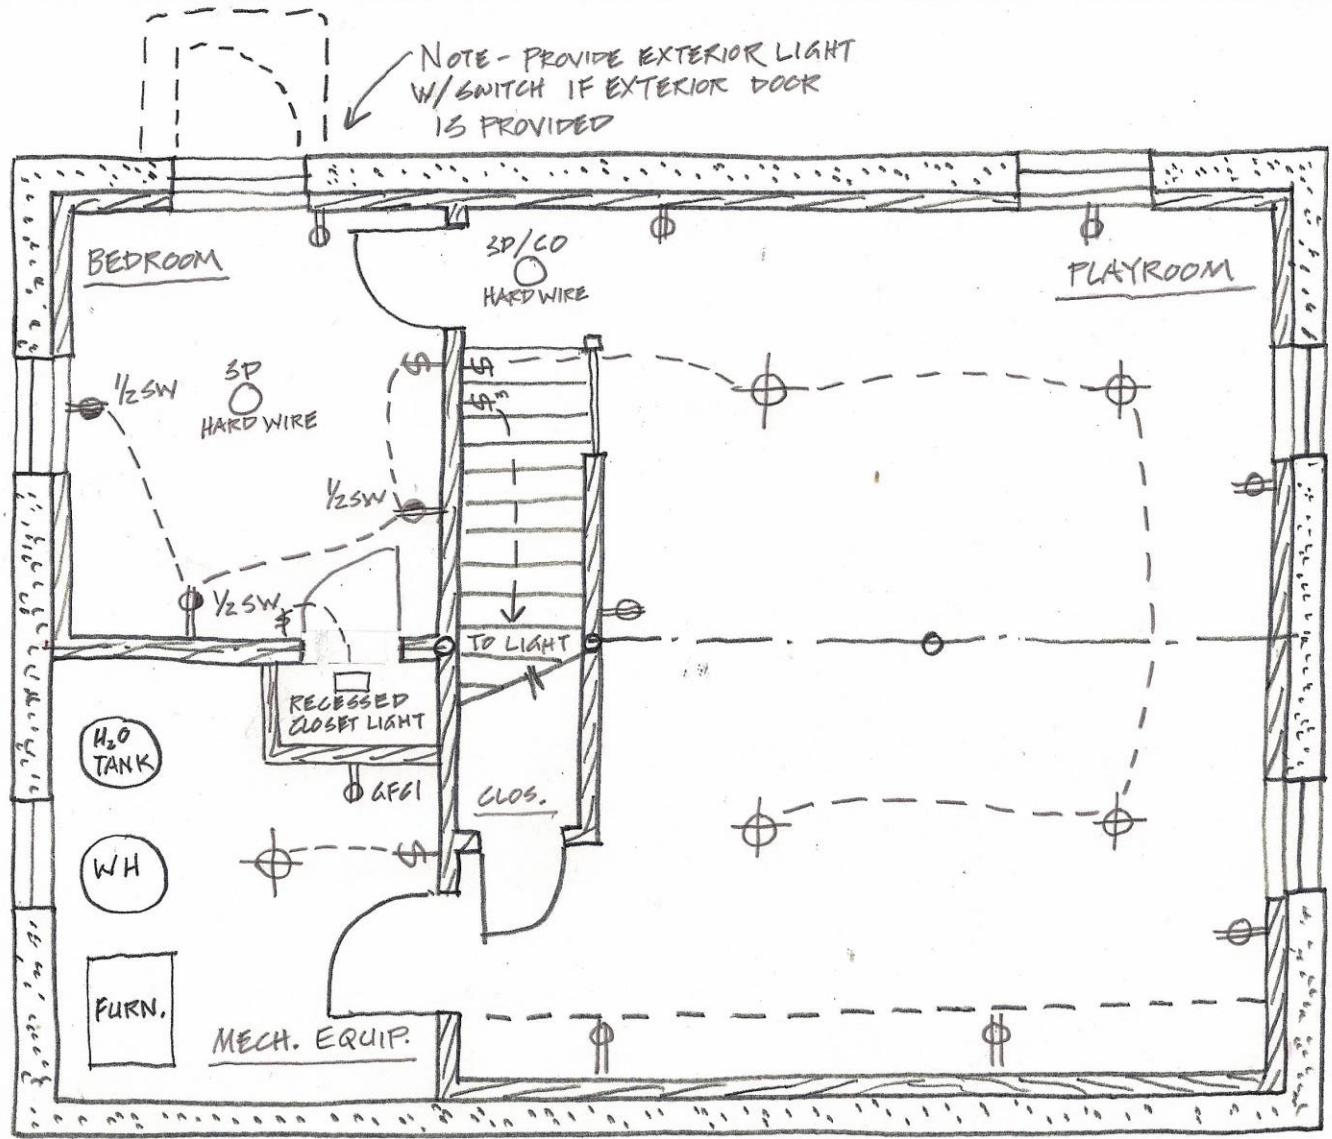 NOTE - PROVIDE EXTERIOR LIGHT
W/ SWITCH IF EXTERIOR DOOR
IS PROVIDED
BEDROOM
SD/CO
HARD WIRE
PLAYROOM
1/2 SW
SD
HARD WIRE
$
$
$3
1/2 SW
1/2 SW
$
TO LIGHT
RECESSED
CLOSET LIGHT
H2O
TANK
GFGI
CLOS.
$
WH
FURN.
MECH. EQUIP.